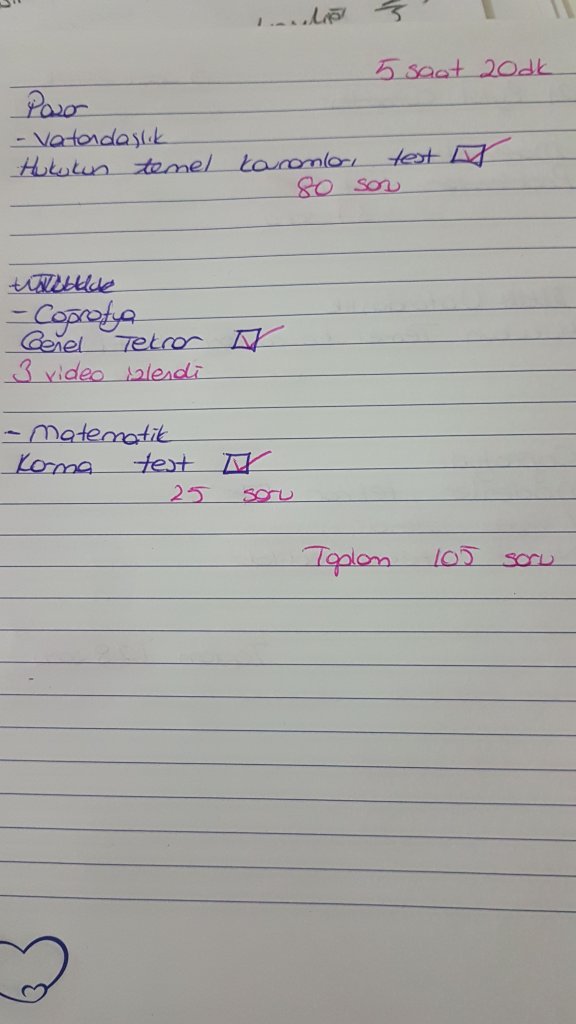 5 saat 20dk
Pazar
- Vatandaşlık
Hukukun temel kavramları test
80 soru
- Coğrafya
Genel Tekrar
3 video izlendi
- Matematik
Karma test
25 soru
Toplam 105 soru